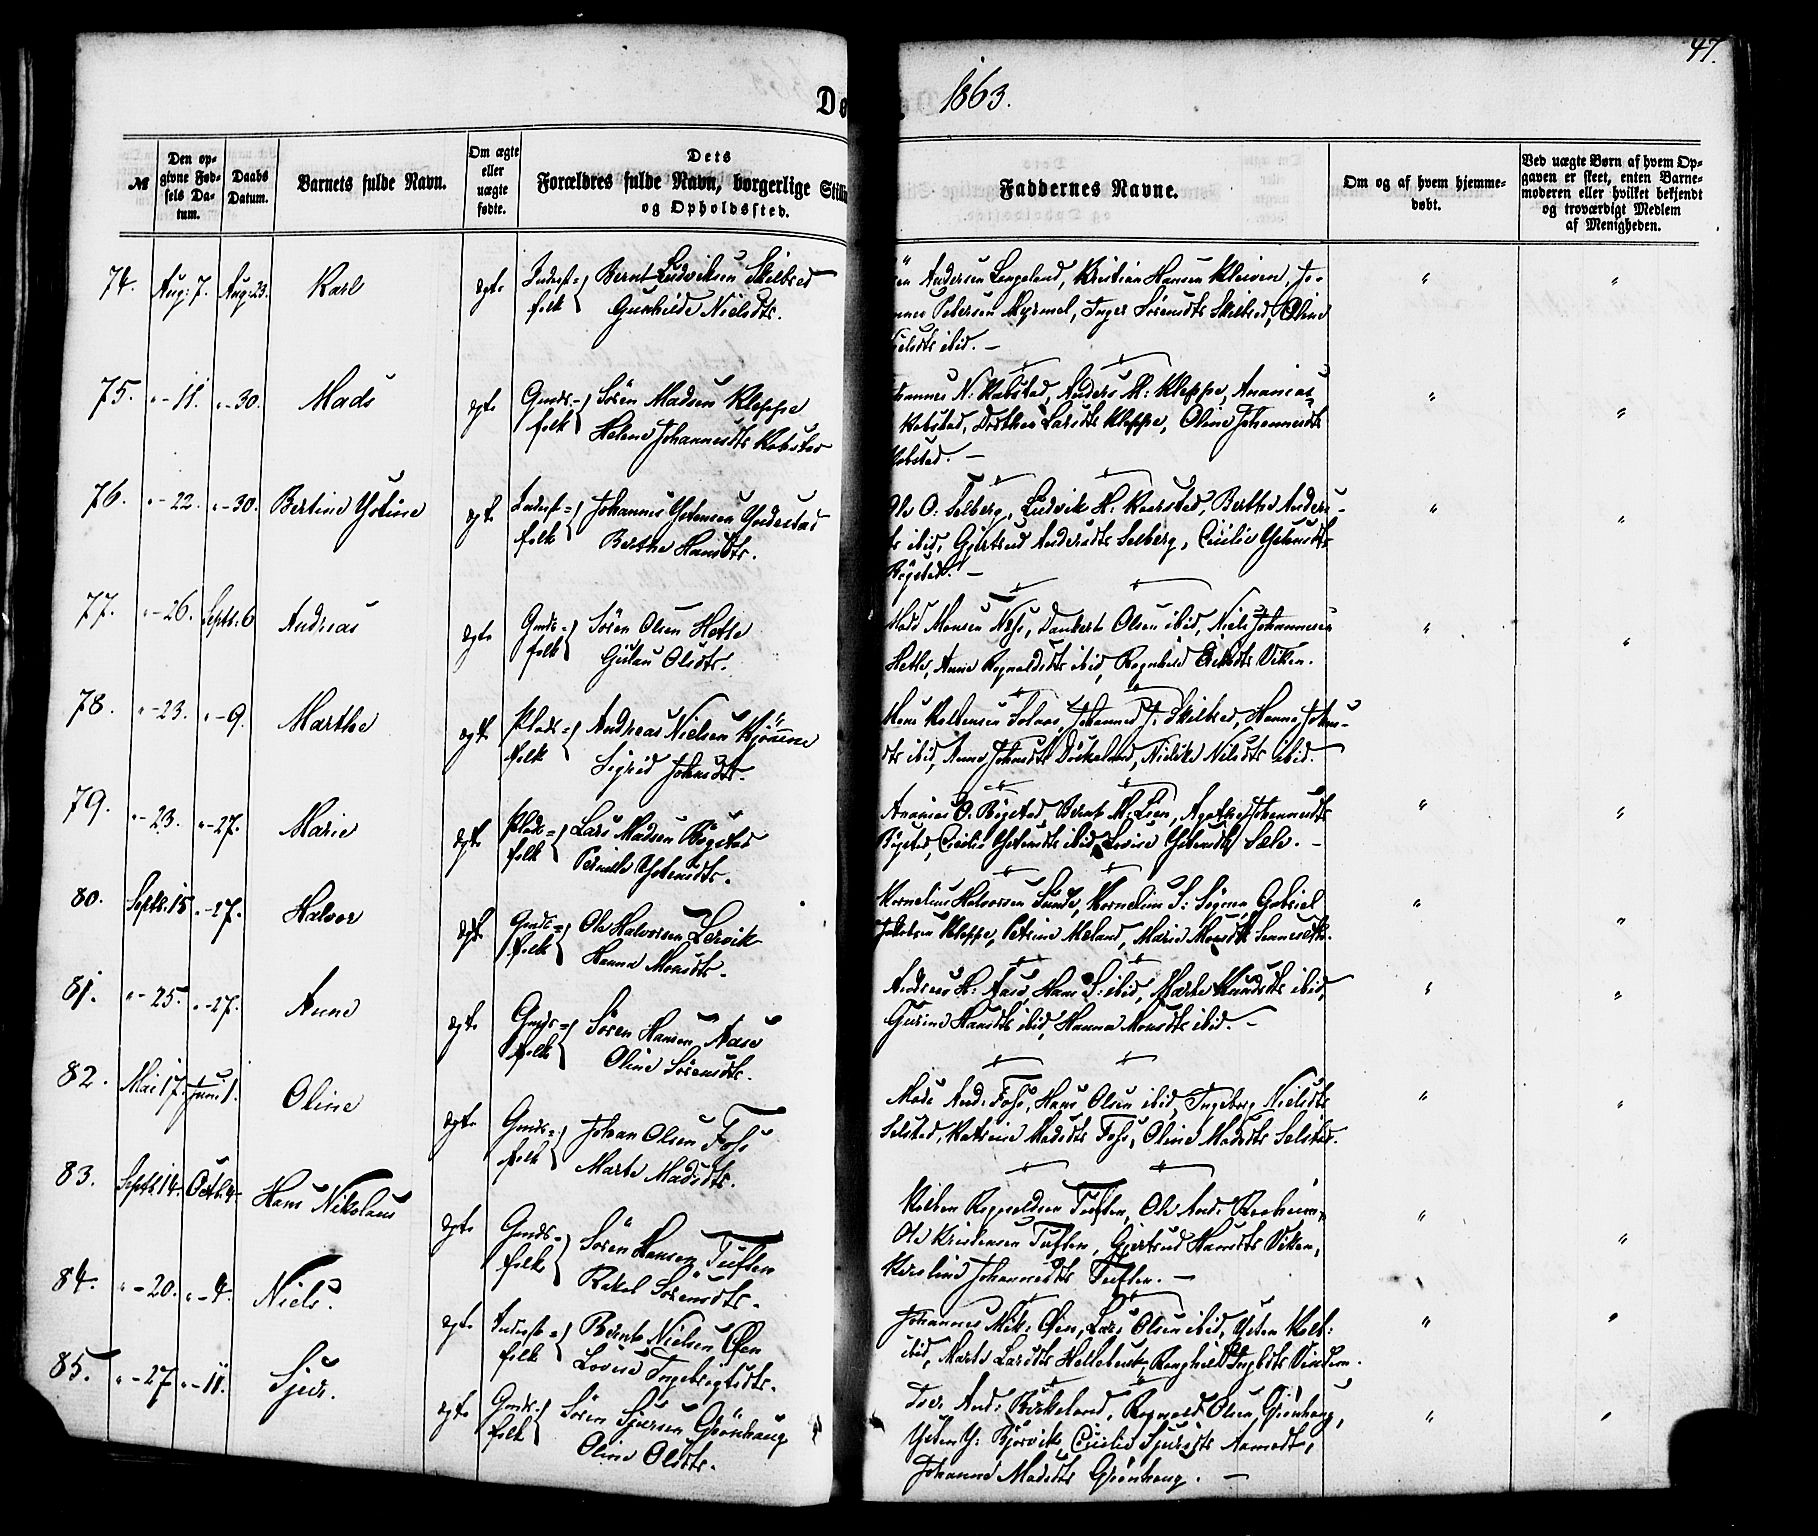 47.
Dø
1863.
№
Den opgivne Fødsels Datum.
Daabs Datum.
Barnets fulde Navn.
Om ægte eller uægte fødte.
Dets Forældres fulde Navn, borgerlige Stilli
og Opholdssted.
Faddernes Navne.
Om og af hvem hjemmedøbt.
Ved uægte Børn af hvem Opgaven er skeet, enten Barnemoderen eller hvilket bekjendt og troværdigt Medlem af Menigheden.
74. Aug: 7. Aug: 23. Karl ægte Inderst= folk Bernt Ludviksen Skilbred
Gunhilde Nielsdtr.
Andersen Langeland, Kristian Hansen Kleiven, Jo-
Petersen Myrmel, Inger Sørensdtr Skilbred, Oline
ibid. —
75. " - 11. " - 30. Mads ægte Gmds= folk Sören Madsen Kleppe
Helene Johannesdtr Kobstad
N: Kobstad, Anders M: Kleppe, Ananias
Kobstad, Dorthea Larsdtr Kleppe, Oline Johannesdtr
Kobstad. —
76. " - 22. " - 30. Bertine Ystine ægte Inderst= folk Johannes Ystensen Yndestad
Berthe Hansdtr.
Ole O. Solberg, Ludvik H: Kaarstad, Berthe Anders-
ibid, Gjertrud Andersdtr Solberg, Cecilie Ystensdtr
Bögstad. —
77. " - 26. Septb. 6 Andreas ægte Gmds= folk Sören Olsen Hatle
Gulau Olsdtr.
Mads Monsen Næss, Dankert Olsen ibid, Niels Johannesen
Hatle, Anne Rognaldsdtr ibid, Ragnhild Viken.
78. " - 23. " - 9. Marthe ægte Plads= folk Andreas Nielsen
Sigrid Johnsdtr.
Johannes J. Skilbred, Hanna Johns-
dtr ibid, Anne Johnsdtr Nilsdtr ibid.
79. " - 23. " - 27. Marie ægte Plads= folk Lars Madsen Bögstad
Pernille Ystensdtr.
Ananias O. Bögstad, Bernt M. Lien, Agathe Johannesdtr
Bögstad, Cecilie Ystensdtr ibid, Lovise Ystensdtr Sæle. —
80. Septb. 15 " - 27. Halvor ægte Gmds= folk Ole Halvorsen Lervik
Hanna Monsdtr.
Kornelius Halvorsen Sunde, Kornelius S: Gabriel
Jakobsen Kleppe, Petrine Mæland, Marie Monsdtr
81. " - 25. " - 27. Anne ægte Gmds= folk Sören Hansen Aase
Oline Sörensdtr.
Andreas H: Aase, Hans S: ibid, Marte ibid,
Gurine Hansdtr ibid, Hanna Monsdtr ibid. —
82. Mai 17. Juni 1. Oline ægte Gmds= folk Johan Olsen Foss
Marte Madsdtr.
Mads And: Foss, Hans Olsen ibid, Ingeborg Nielsdtr
Selstad, Katrine Madsdtr Foss, Oline Madsdtr Selstad.
83. Septb. 14. Octb. 4. Hans Nikolaus ægte Gmds= folk Sören Hansen Tuften
Rakel Sörensdtr.
Kolben Rognaldsen Tuften, Ole And:
Ole Kristensen Tuften, Gjertrud Hansdtr Viken,
Karoline Johannesdtr Tuften. —
84. " - 20. " - 4. Niels. ægte Inderst= folk Bernt Nielsen Öen
Lovise Ingebrigtsdtr.
Johannes Mik: Öen, Lars Olsen ibid, Ysten Kolb:
ibid, Marte Larsdtr Ragnhild Ingbdtr Vindem.
85. " - 27. " - 11. Sjur. ægte Gmds= folk Sören Sjursen Grönhaug
Oline Olsdtr.
Tore And: Birkeland, Rognald Olsen Grönhaug,
Ysten Y: Björvik, Cecilie Sjursdtr Aamodt,
Johanne Madsdtr Grönhaug. —